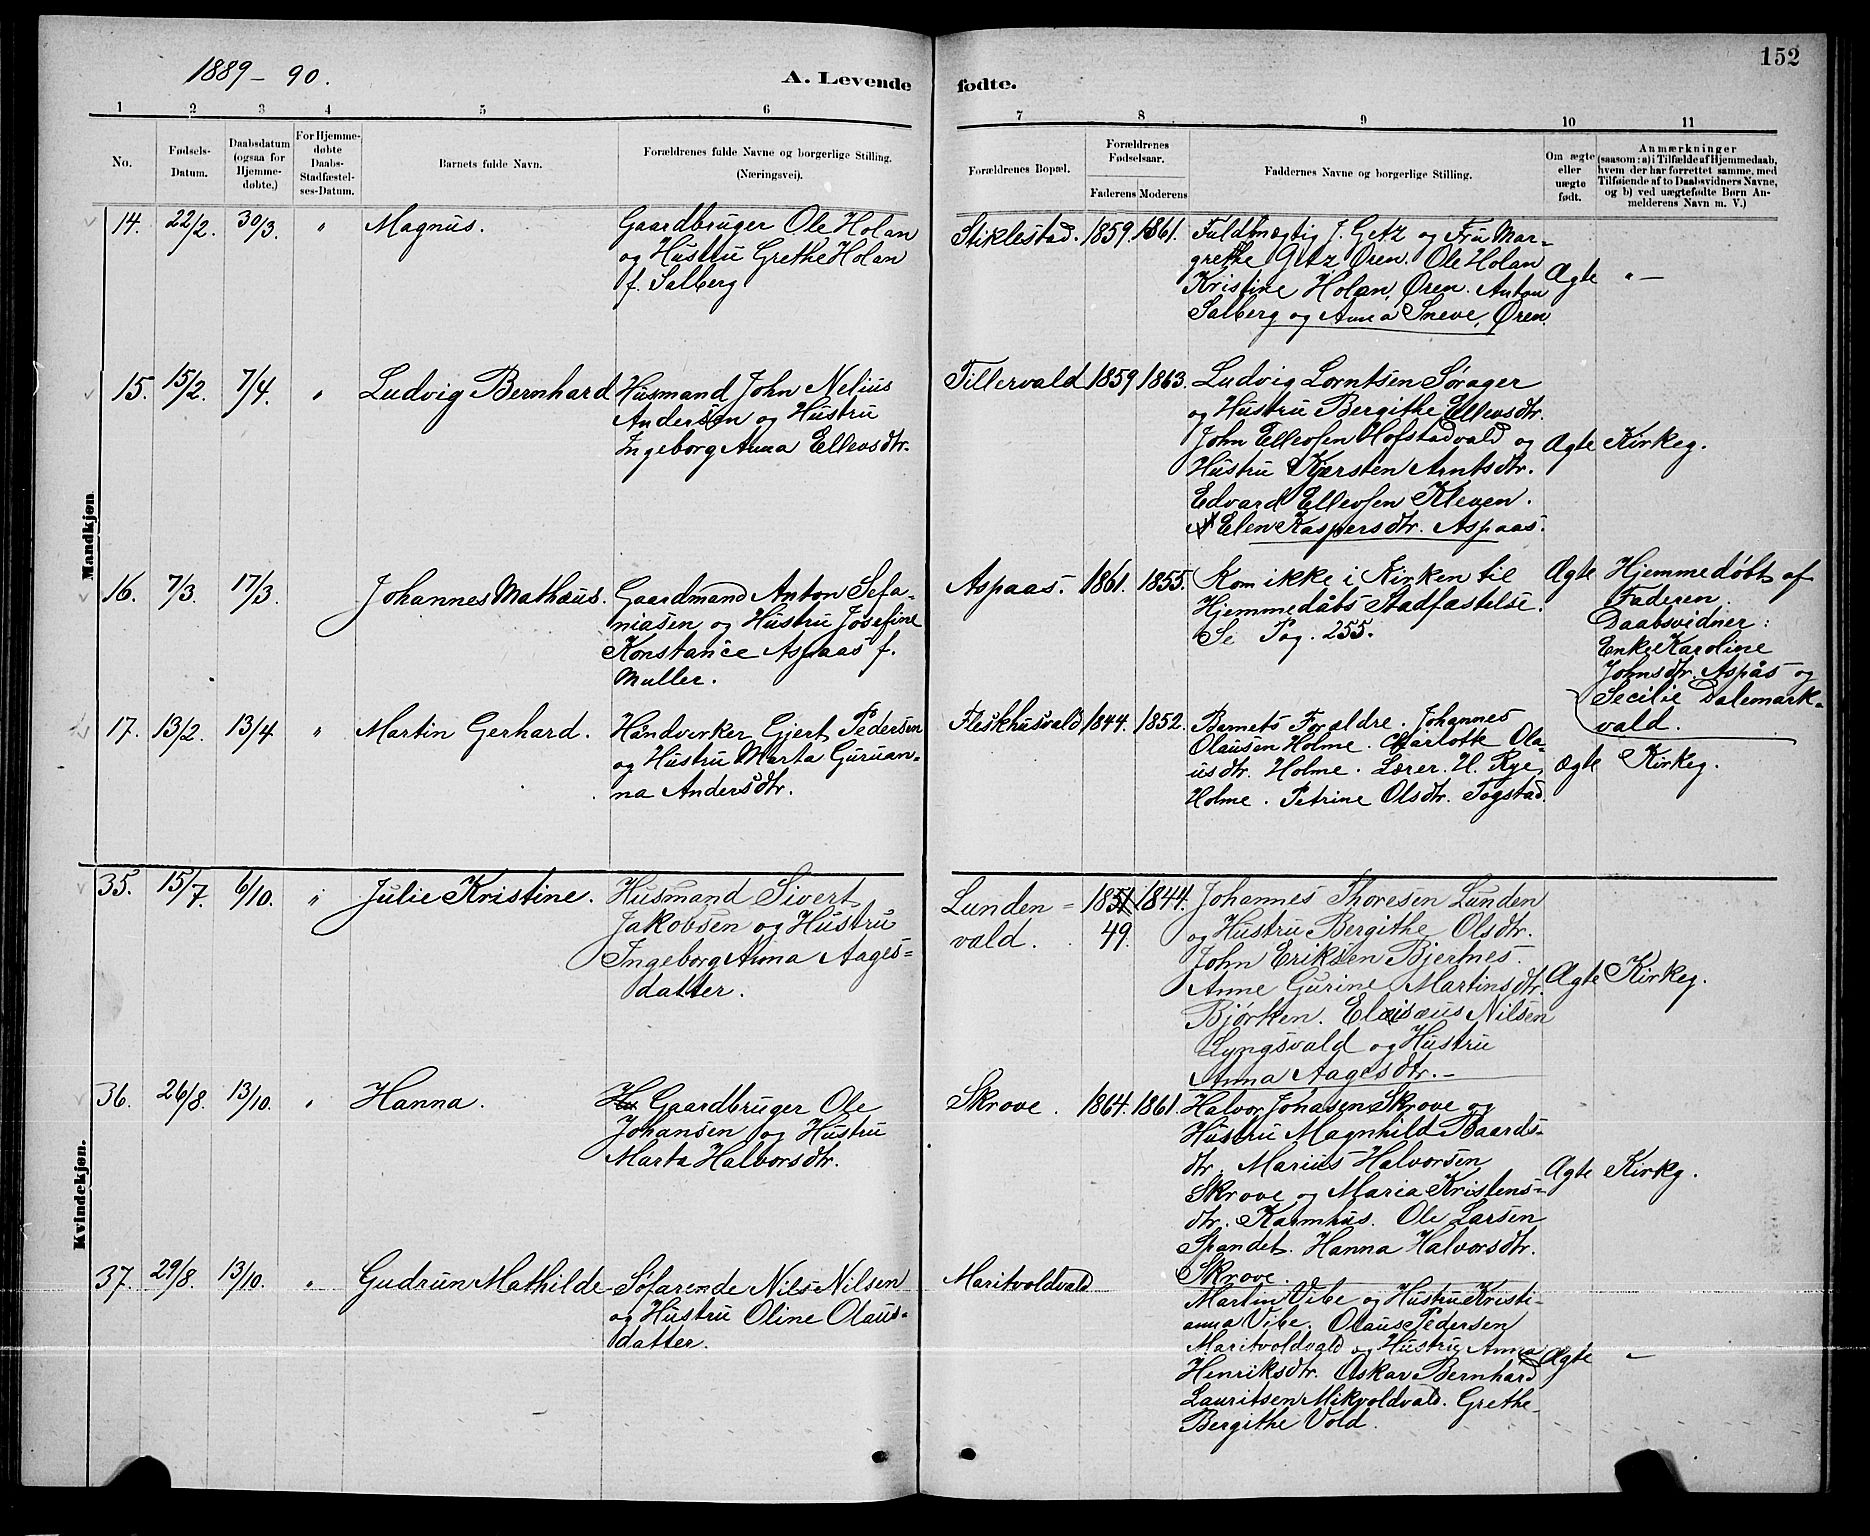 152
1889 – 90.
A. Levende fødte.
1 2 3 4 5 6 7 8 9 10 11
No.
Fødsels-
Datum.
Daabsdatum
(ogsaa for
Hjemme-
døbte,)
For Hjemme-
døbte
Daabs-
Stadfæstel-
ses-Datum.
Barnets fulde Navn.
Forældrenes fulde Navne og borgerlige Stilling.
(Næringsvei).
Forældrenes Bopæl.
Forældrenes
Fødselsaar.
Faderens Moderens
Faddernes Navne og borgerlige Stilling.
Om ægte
eller
uægte
født.
Anmærkninger
(saasom: a) i Tilfælde af Hjemmedaab,
hvem der har forrettet samme, med
Tilføiende af to Daabsvidners Navne,
og b) ved uægtefødte Børn An-
melderens Navn m. V.)
Mandkjøn.
14. 22/2. 30/3. " Magnus.
Gaardbruger Ole Holan
og Hustru Grethe Holan
f. Salberg
Stiklestad. 1859. 1861.
Fuldmægtig J. Getz og Fru Mar-
grethe Getz Øren. Ole Holan
Kristine Holan, Øren. Anton
Salberg og Anna Sneve, Øren.
Ægte " —
15. 15/2. 7/4. " Ludvig Bernhard
Husmand John Nelius
Andersen og Hustru
Ingeborg Anna Ellevsdtr.
Tillervald 1859 1863.
Ludvig Lorntsen Sørager
og Hustru Bergithe Ellevsdtr.
John Ellevsen Hofstadvald og
Hustru Kjersten Arntsdtr.
Edvard Ellevsen Kleven.
Elen Kaspersdtr. Aspaas.
Ægte Kirkeg.
16. 7/3. 17/3. Johannes Mathæus.
Gaardmand Anton Sefa-
niasen og Hustru Josefine
Konstance Aspaas f.
Muller.
Aspaas. 1861. 1855.
Kom ikke i Kirken til
Hjemmedåbs Stadfæstelse.
Se Pag. 255.
Ægte
Hjemmedøbt af
Faderen.
Daabsvidner:
Enke Karoline
Johnsdtr. Aspås og
Secilie Dalemark-
vald.
17. 13/2. 13/4. " Martin Gerhard.
Håndverker Gjert Pedersen
og Hustru Marta Guruan-
na Andersdtr.
Fleskhusvald 1844. 1852.
Barnets Forældre. Johannes
Olausen Holme. Charlotte Ola-
usdtr. Holme. Lærer H. Rye,
Holme. Petrine Olsdtr. Togstad.
ægte Kirkeg.
Kvindekjøn.
35. 15/7. 6/10. " Julie Kristine.
Husmand Sivert
Jakobsen og Hustru
Ingeborg Anna Aages-
datter.
Lunden-
vald.
1851 1844.
49.
Johannes Thoresen Lunden
og Hustru Bergithe Olsdtr.
John Eriksen Bjertnes.
Anne Gurine Martinsdtr.
Bjørken. Elisæus Nilsen
Lyngsvald og Hustru
Anna Aagesdtr. –
Ægte Kirkeg.
36. 26/8. 13/10. " Hanna.
Gaardbruger Ole
Johansen og Hustru
Marta Halvorsdtr.
Skrove. 1864. 1861.
Halvor Jonasen Skrove og
Hustru Magnhild Baards-
dtr. Marius Halvorsen
Skrove og Maria Kristens-
dtr. Karmhus. Ole Larsen
Spandet. Hanna Halvorsdtr.
Skrove.
Ægte Kirkg.
37. 29/8. 13/10. " Gudrun Mathilde
Søfarende Nils Nilsen
og Hustru Oline Olaus-
datter.
Maritvoldvald
Martin Vibe og Hustru Kristi-
anna Vibe. Olaus Pedersen
Maritvoldvald og Hustru Anna
Henriksdtr. Oskar Bernhard
Lauritsen Mikvoldvald. Grethe
Bergithe Vold.
Ægte –